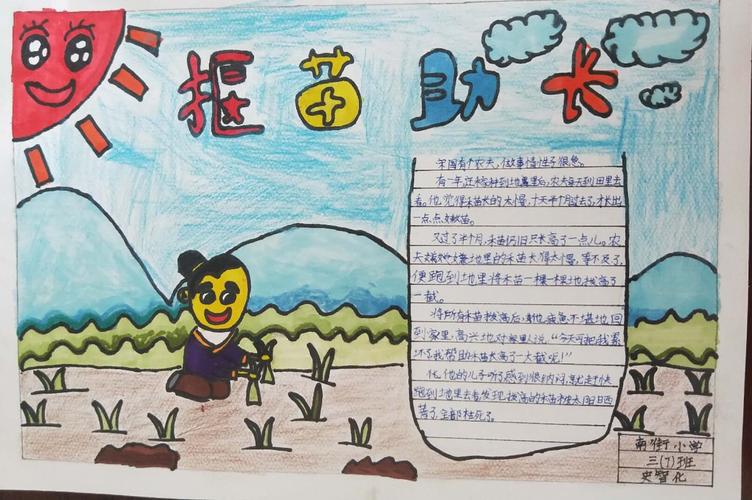 揠苗助长
宋国有个农夫,做事情性子很急。
有一年,庄稼种到地里后,农夫每天到田里去
看。他觉得禾苗长的太慢,十天半个月过去了,才长出
一点点嫩苗。
又过了半个月,禾苗仍旧只长高了一点儿。农
夫嫌地里的禾苗长得太慢,等不及了,
便跑到地里将禾苗一棵一棵地拔高了
一截。
将所有禾苗拔高后,他疲惫不堪地回
到家里,高兴地对家里人说,“今天可把我累
坏了,我帮助禾苗长高了一大截呢!”
他的儿子听了感到很纳闷,就赶快
跑到地里去看,发现,拔高的禾苗被太阳晒
蔫了,全都枯死了。
南街小学
三(7)班
史智化